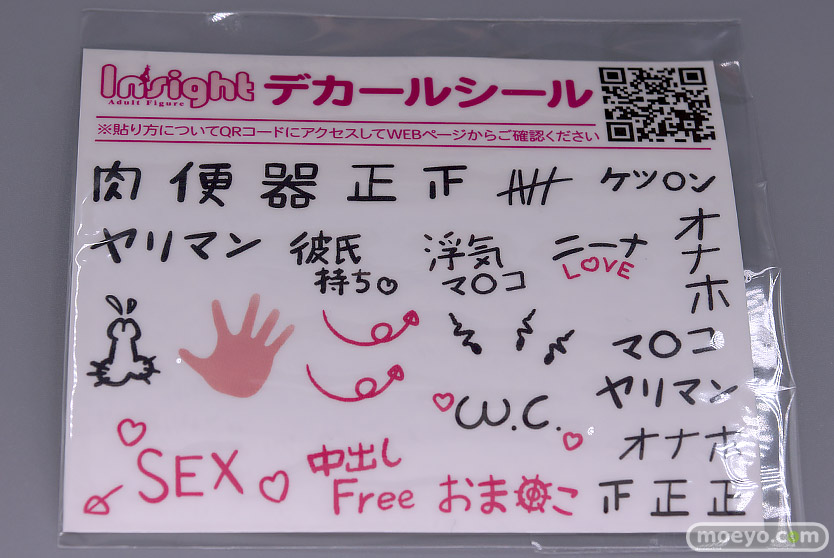 Insight デカールシール
Adult Figure
※貼り方についてQRコードにアクセスしてWEBページからご確認ください
肉 便 器 正 下 ケツ〇ン
ヤリマン 彼氏持ち♡ 浮気マ〇コ ニーナ LOVE オナホ
マ〇コ
ヤリマン
W.C.
オナホ
SEX 中出し Free おま〇こ 下 正 正
moeyo.com